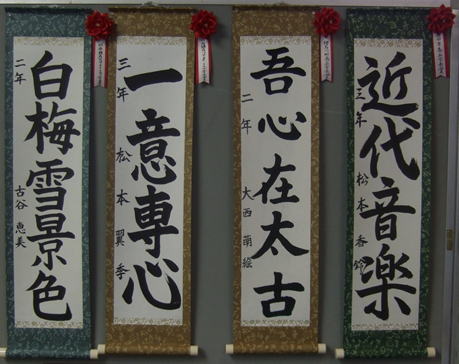 近代音楽
三年 松本香
吾心在太古
二年 大西萌絵
一意専心
三年 松本翼季
白梅雪景色
二年 古谷恵美